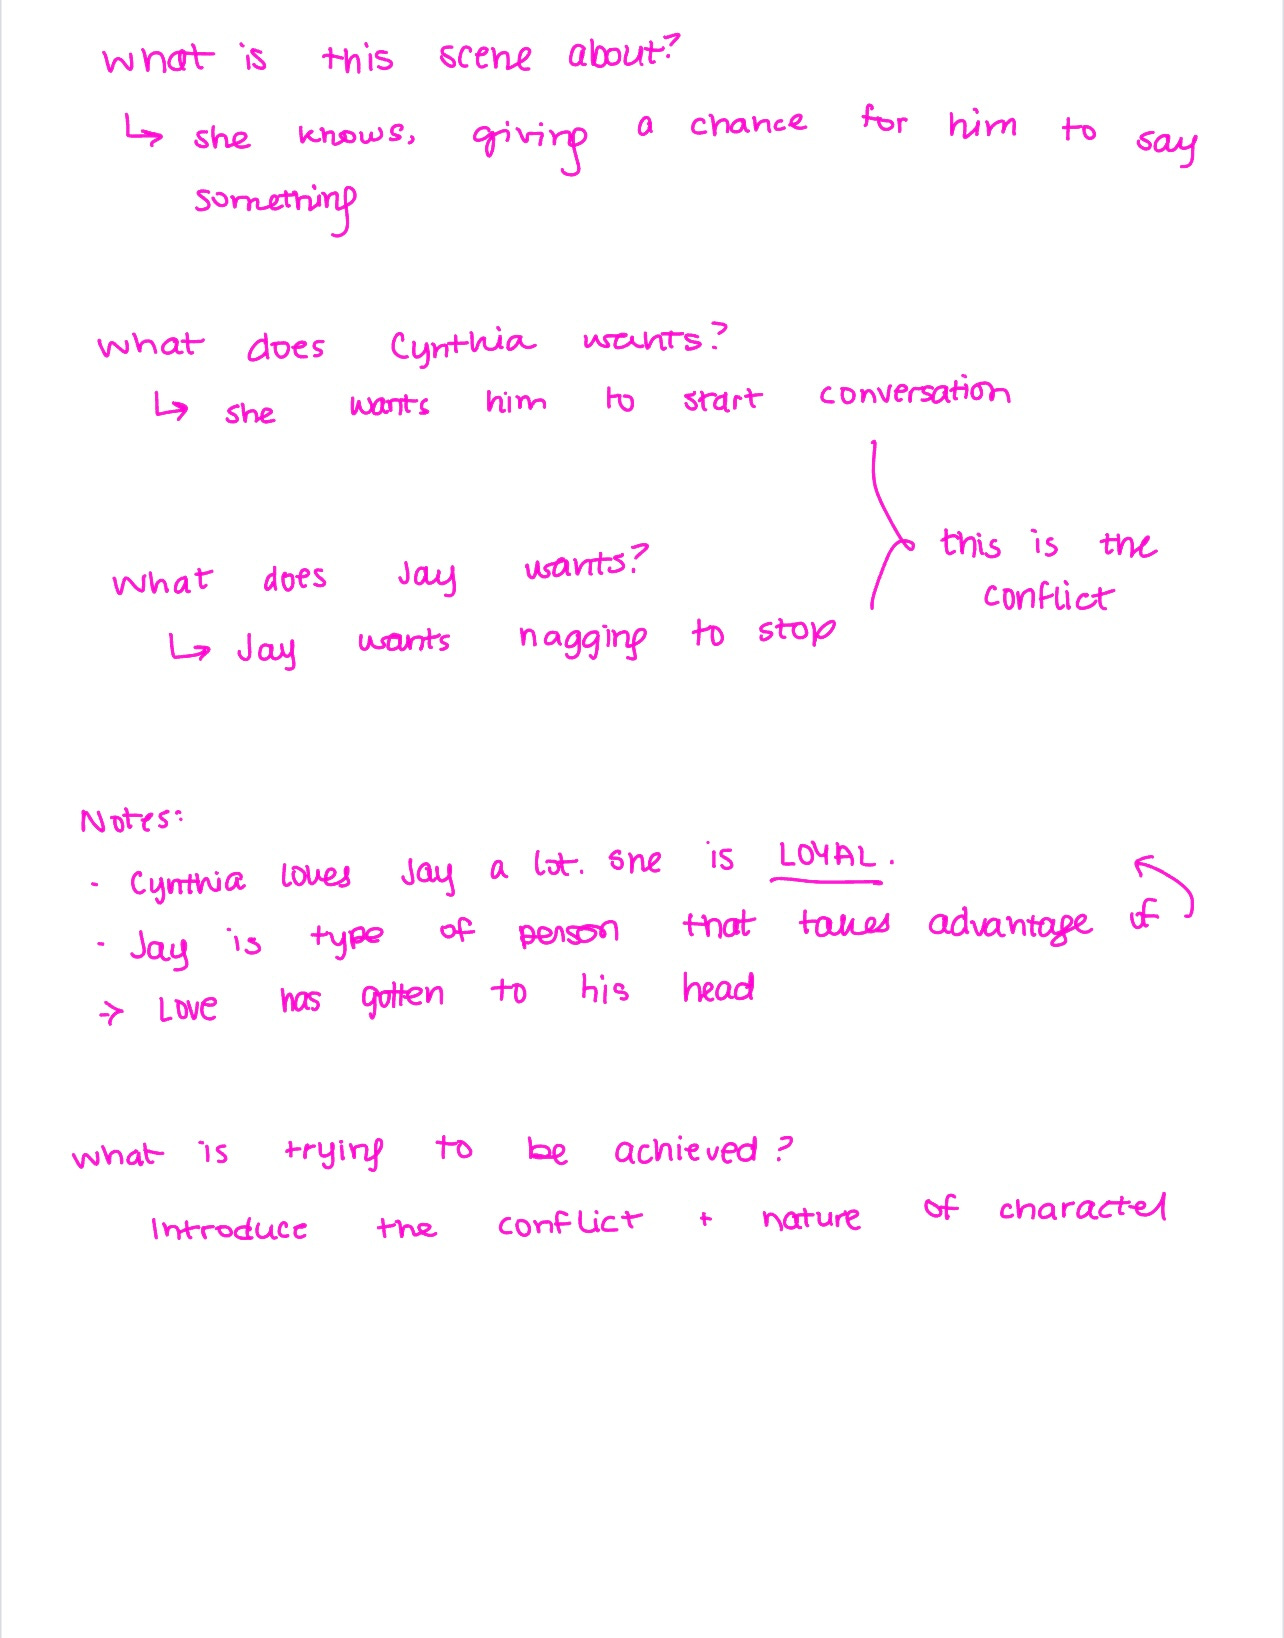 What is this scene about?
↳ she knows, giving a chance for him to say
something
What does Cynthia wants?
↳ she wants him to start conversation
this is the
conflict
What does Jay wants?
↳ Jay wants nagging to stop
Notes:
- Cynthia loves Jay a lot. She is LOYAL.
- Jay is type of person that takes advantage of
→ Love has gotten to his head
What is trying to be achieved?
Introduce the conflict + nature of character